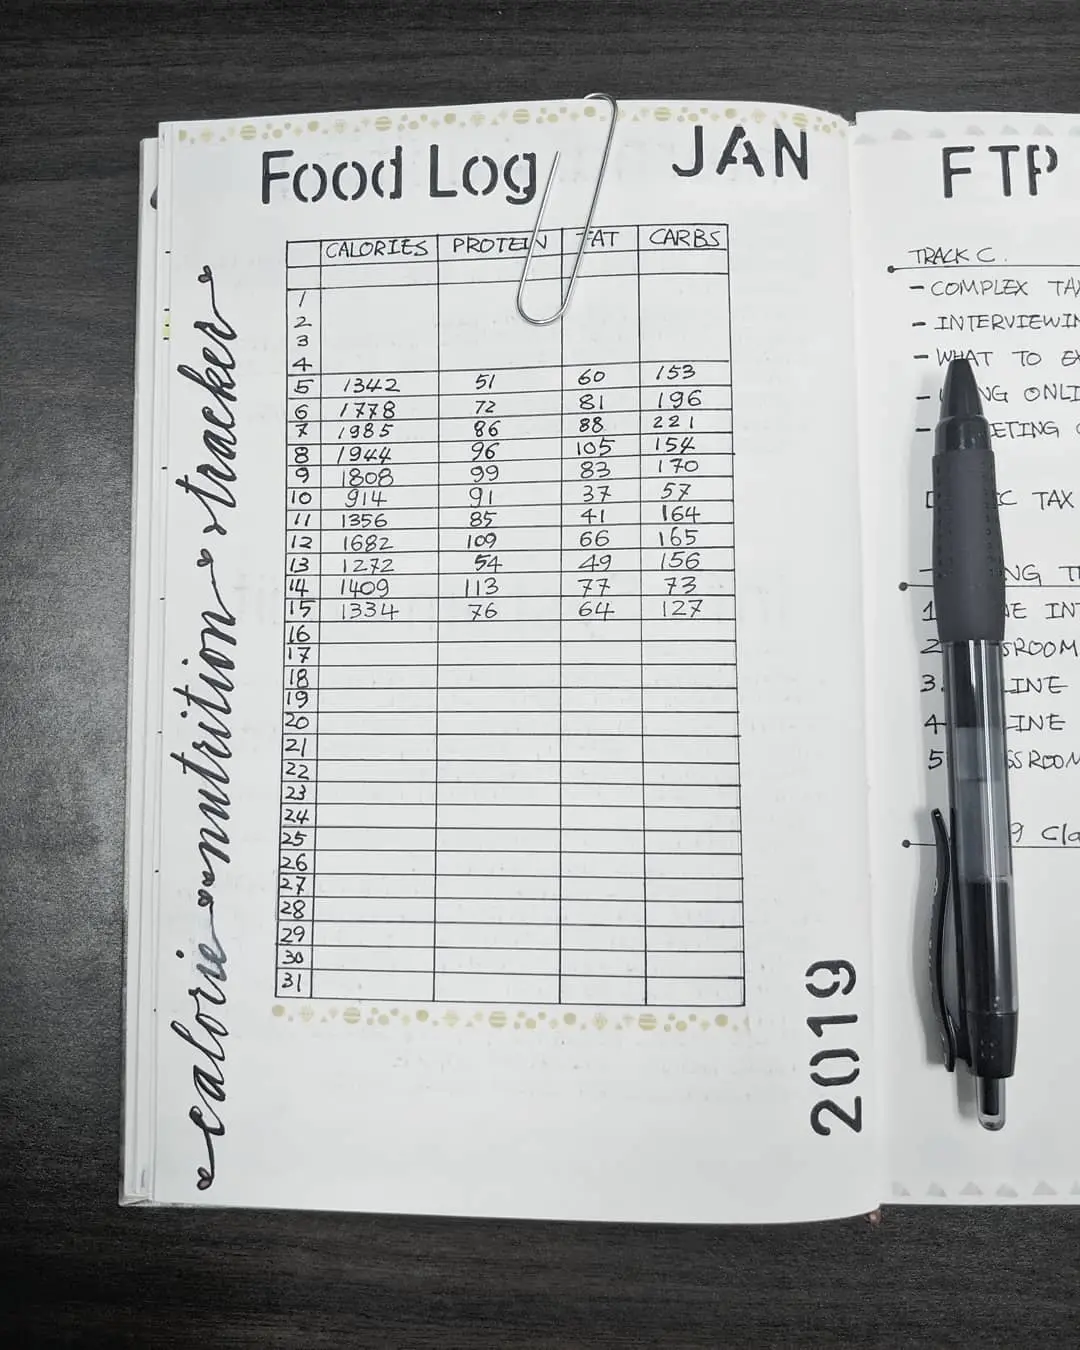 Food Log
JAN
calorie nutrition tracker
CALORIES PROTEIN FAT CARBS
1
2
3
4
5 1342 51 60 153
6 1778 72 81 196
7 1985 86 88 221
8 1944 96 105 154
9 1808 99 83 170
10 914 91 37 57
11 1356 85 41 164
12 1682 109 66 165
13 1272 54 49 156
14 1409 113 77 73
15 1334 76 64 127
16
17
18
19
20
21
22
23
24
25
26
27
28
29
30
31
2019
FTP
TRACK C.
- COMPLEX TAX
- INTERVIEWIN
- WHAT TO EX
- NG ONLI
- ETING
IC TAX
NG T
1 NE INT
2 SROOM
3. LINE
4 LINE
5 SSROOM
9 Cla